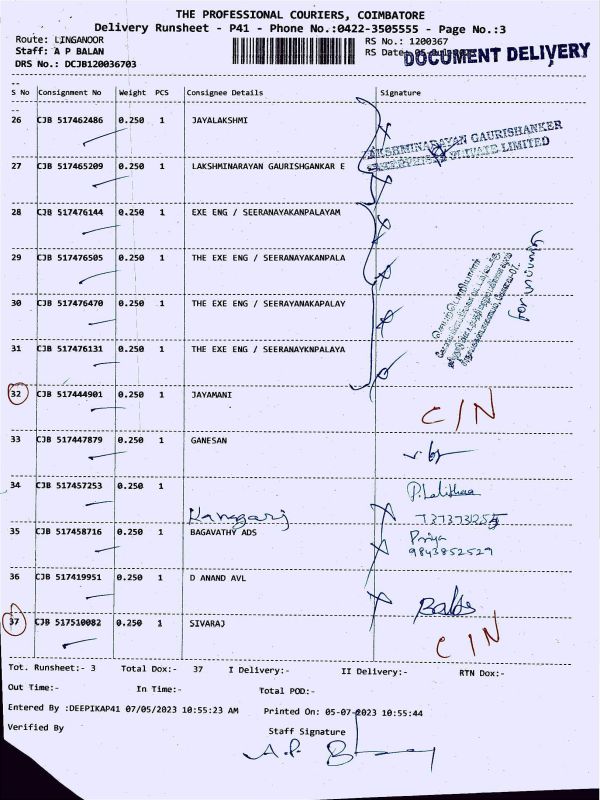 THE PROFESSIONAL COURIERS, COIMBATORE
Delivery Runsheet - P41 - Phone No.:0422-3505555 - Page No.:3
Route: LINGANOOR
RS No.: 1200367
Staff: A P BALAN
RS Date:
DOCUMENT DELIVERY
DRS No.: DCJB120036703
S No Consignment No Weight PCS Consignee Details Signature
26 CJB 517462486 0.250 1 JAYALAKSHMI
LAKSHMINARAYAN GAURISHANKER
ENTERPRISES PRIVATE LIMITED
27 CJB 517465209 0.250 1 LAKSHMINARAYAN GAURISHGANKAR E
28 CJB 517476144 0.250 1 EXE ENG / SEERANAYAKANPALAYAM
29 CJB 517476505 0.250 1 THE EXE ENG / SEERANAYAKANPALA
30 CJB 517476470 0.250 1 THE EXE ENG / SEERAYANAKAPALAY
31 CJB 517476131 0.250 1 THE EXE ENG / SEERANAYKNPALAYA
32 CJB 517444901 0.250 1 JAYAMANI C/N
33 CJB 517447879 0.250 1 GANESAN
34 CJB 517457253 0.250 1 P. Lalithaa
Kanagaraj 7373731255
35 CJB 517458716 0.250 1 BAGAVATHY ADS Priya
9843852529
36 CJB 517419951 0.250 1 D ANAND AVL
37 CJB 517510082 0.250 1 SIVARAJ C/N
Tot. Runsheet:- 3 Total Dox:- 37 I Delivery:- II Delivery:- RTN Dox:-
Out Time:- In Time:- Total POD:-
Entered By :DEEPIKAP41 07/05/2023 10:55:23 AM Printed On: 05-07-2023 10:55:44
Verified By Staff Signature